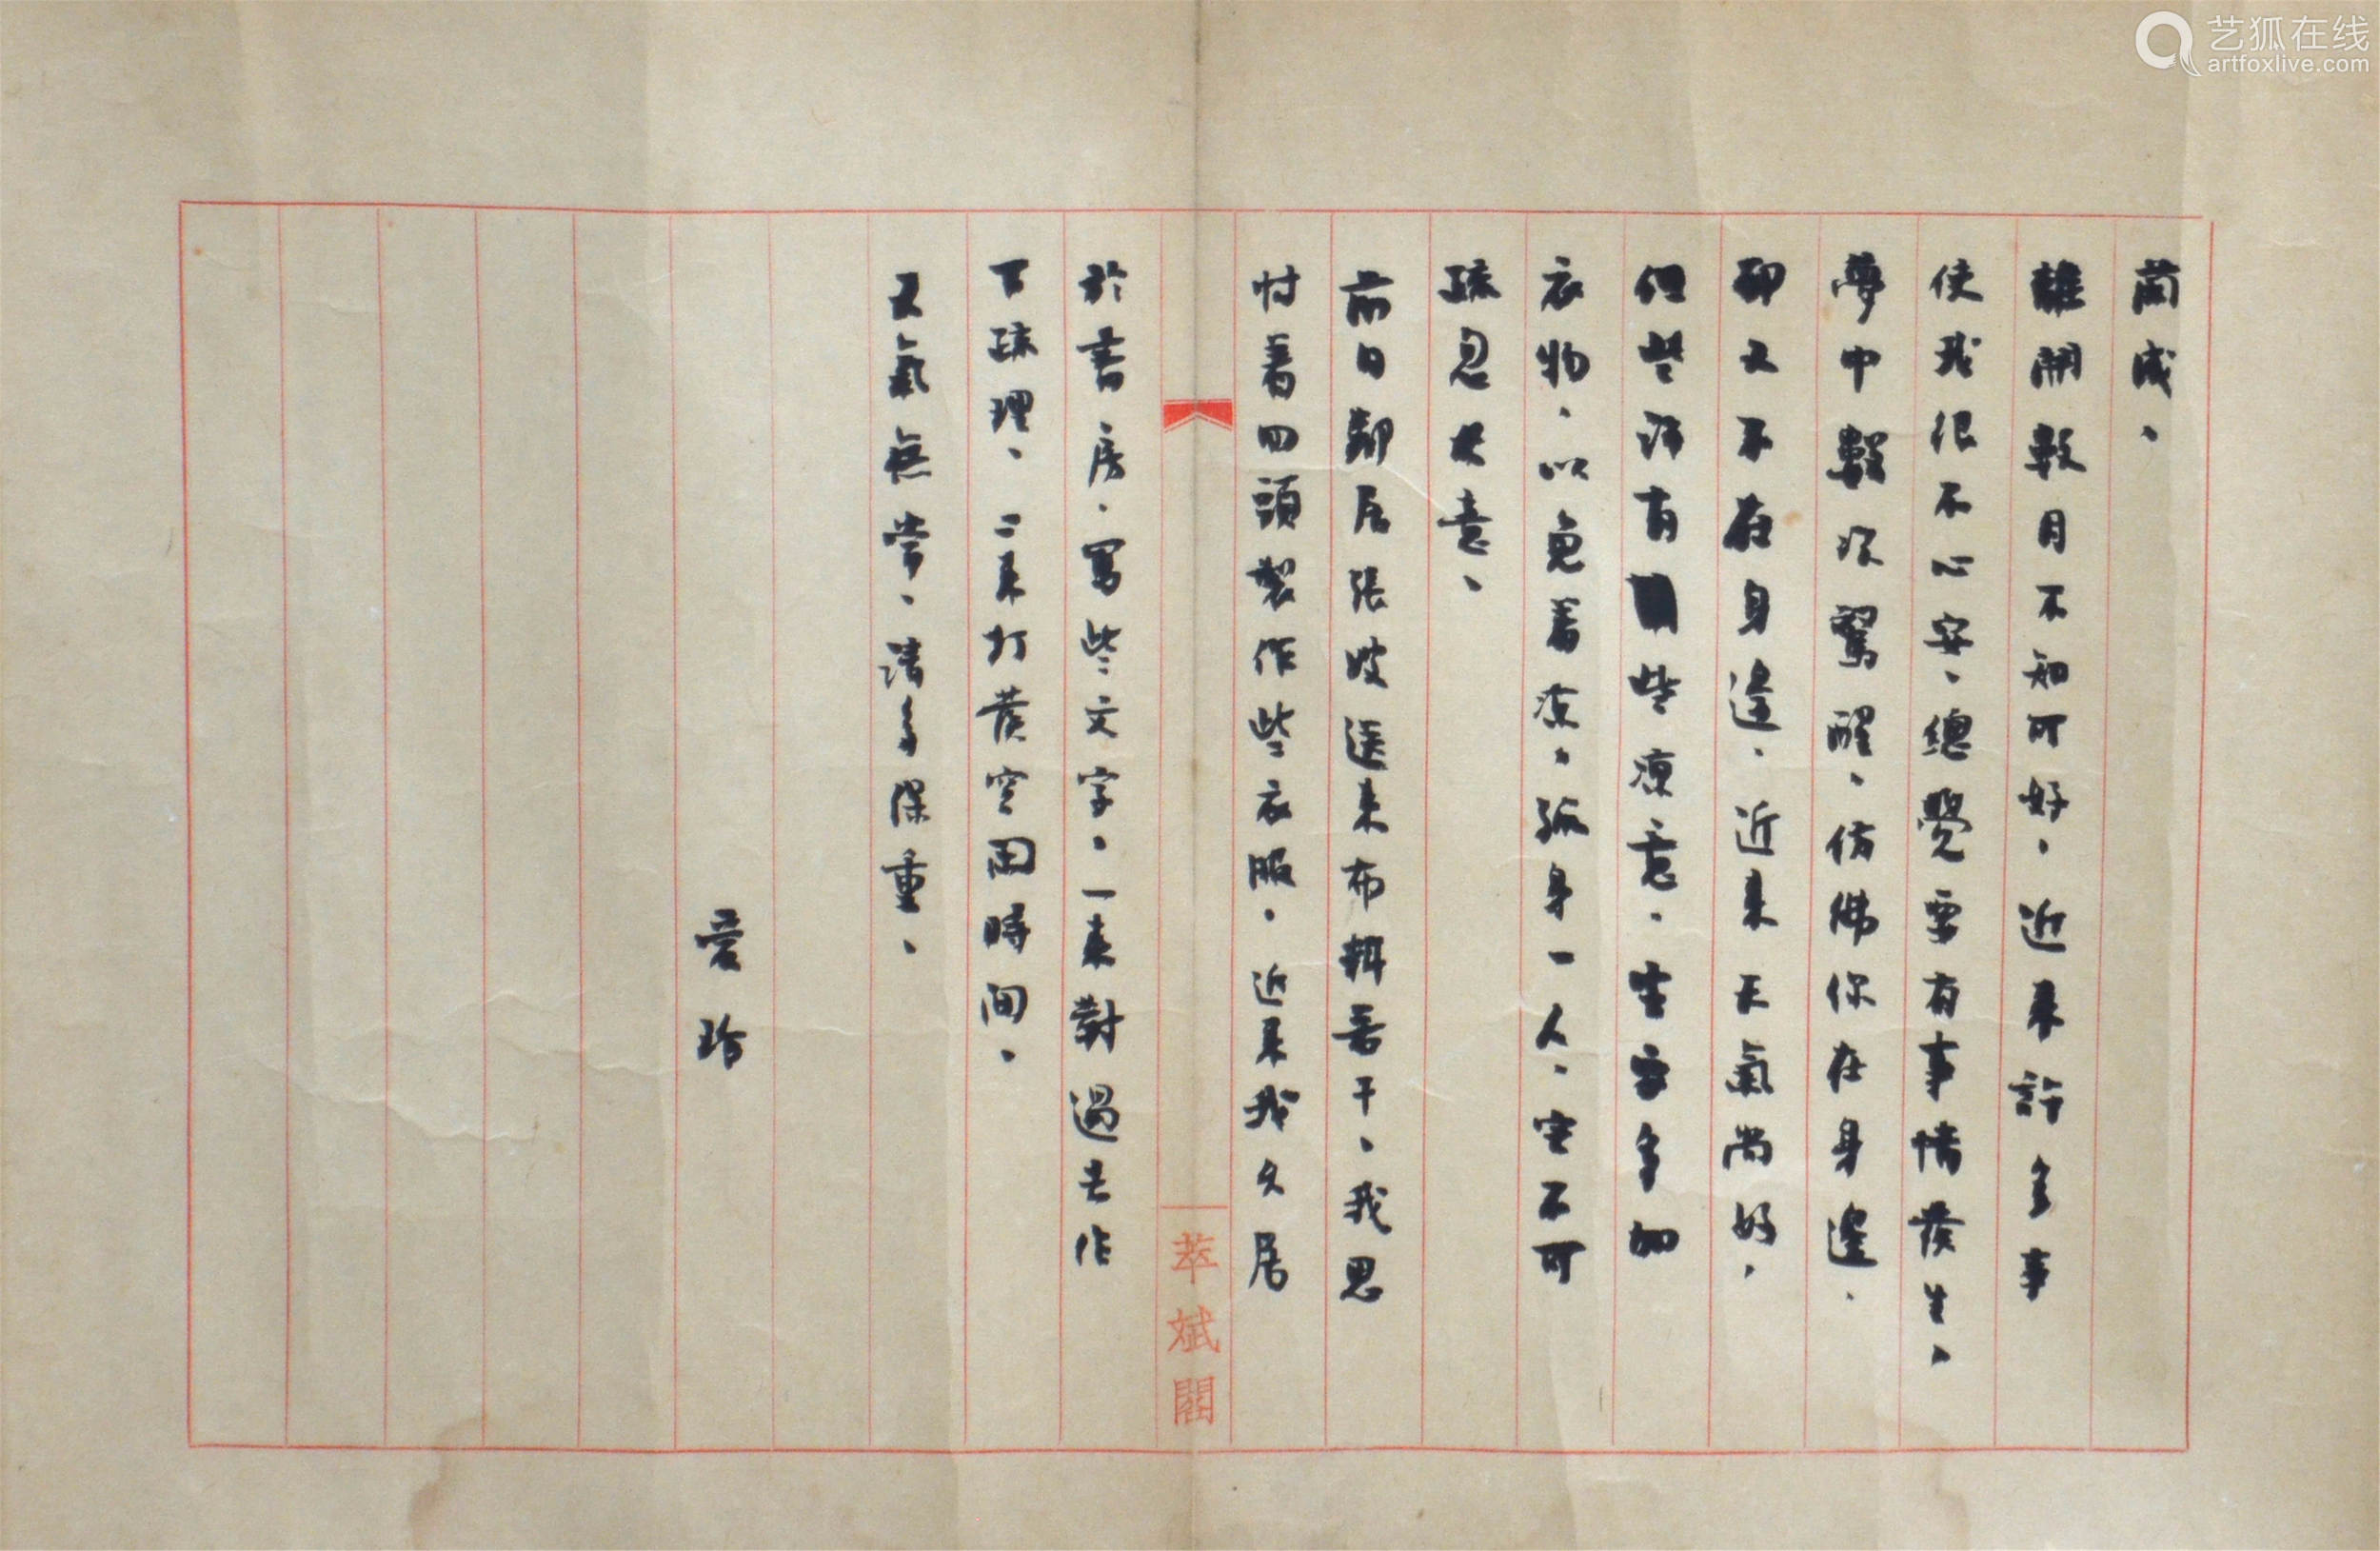 艺狐在线
artfoxlive.com
蘭成、
離開數月不知可好、近來許多事
使我很不心安、總覺要有事情發生、
夢中數次驚醒、彷彿你在身邊、
卻又不在身邊、近來天氣尚好、
但些許有些涼意、生要多加
衣物、以免着涼、孤身一人、定不可
疏忽大意、
前日鄰居張婆送來布料若干、我思
忖着回頭製作些衣服、近來我久居
萃斌閣
於書房、寫些文字、一來對過去作
下疏理、二來打發空閑時間、
天氣無常、請多保重、
愛玲